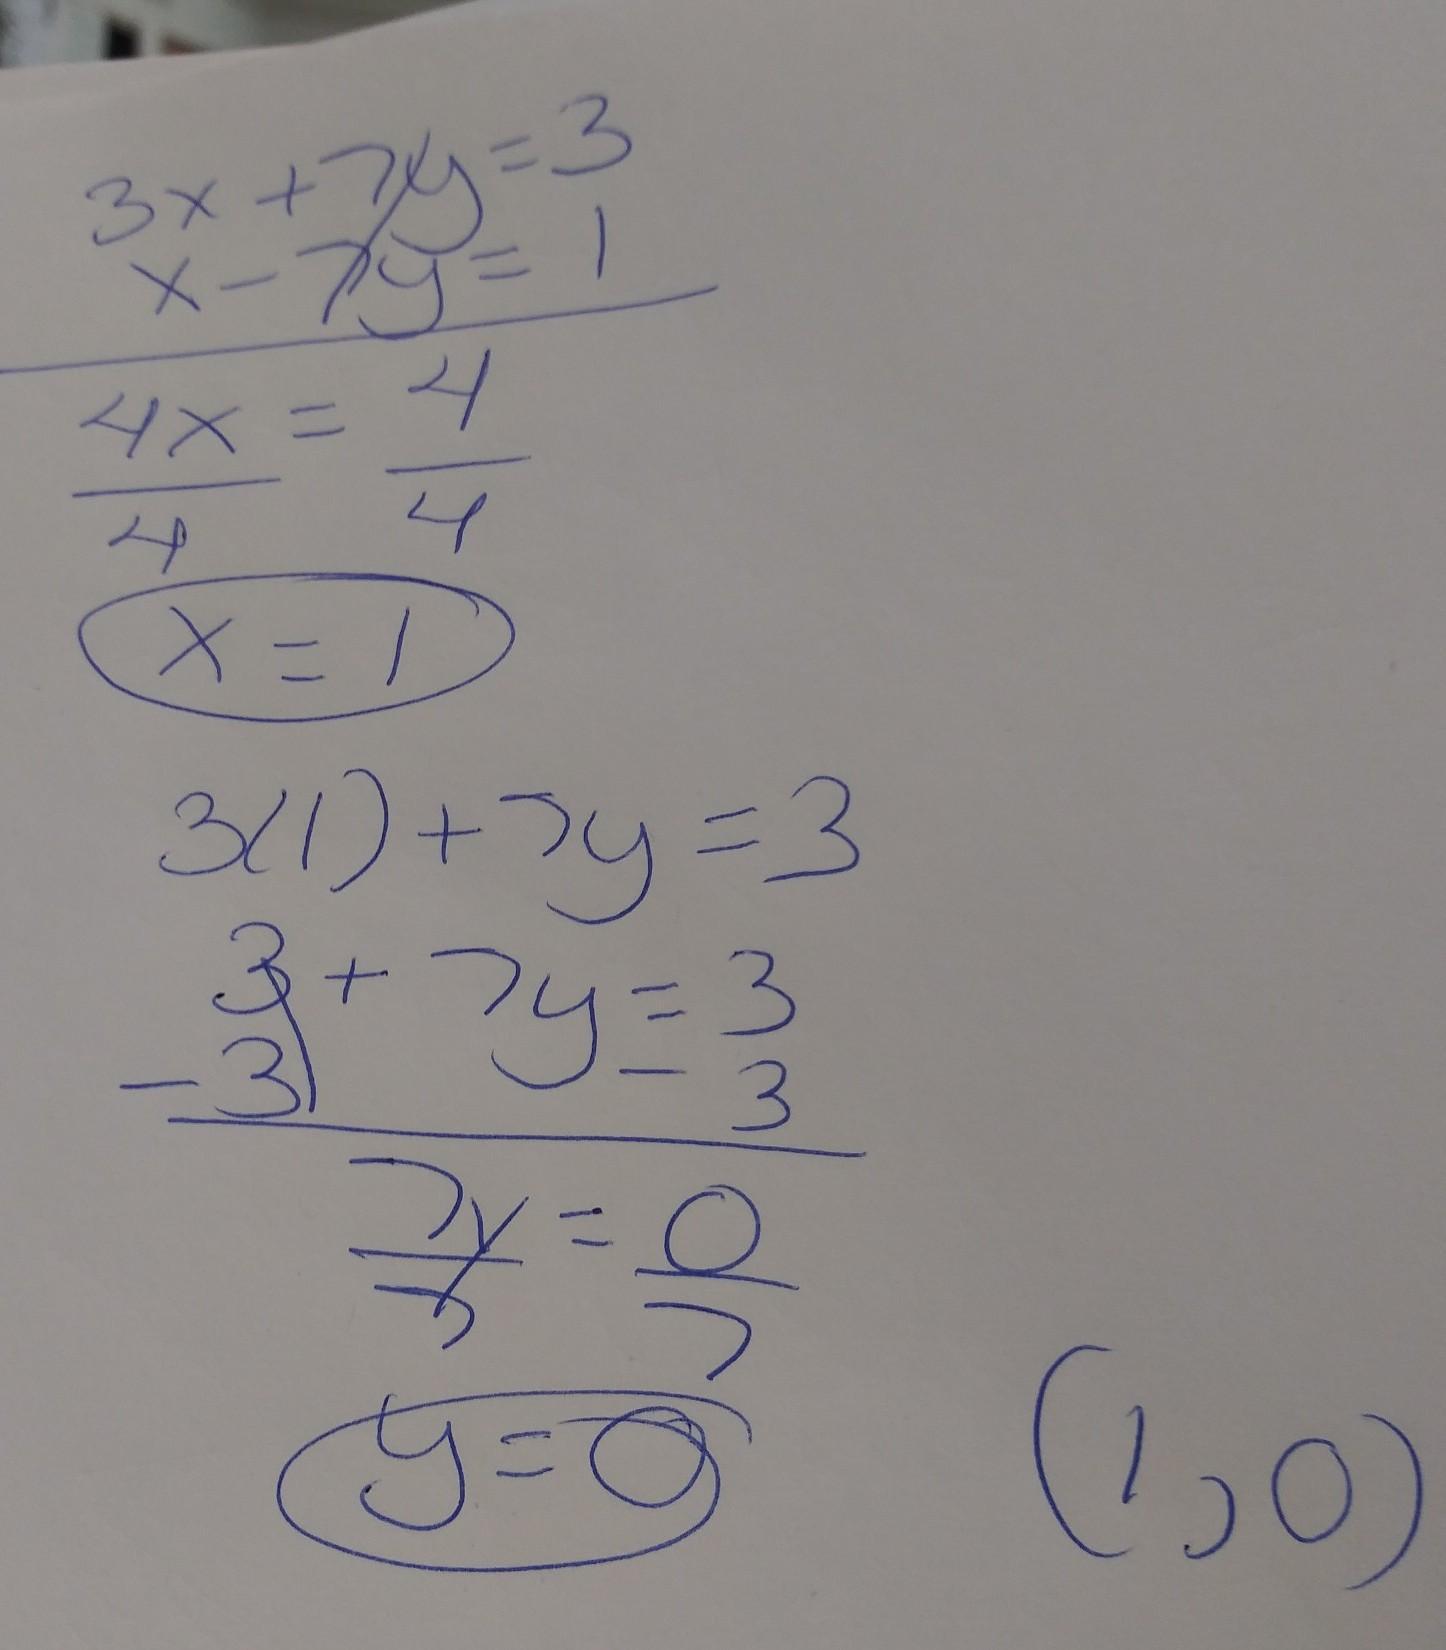 3x + 7y = 3
x - 7y = 1
4x = 4
4 4
x = 1
3(1) + 7y = 3
3 + 7y = 3
- 3 - 3
7y = 0
7 7
y = 0
(1, 0)